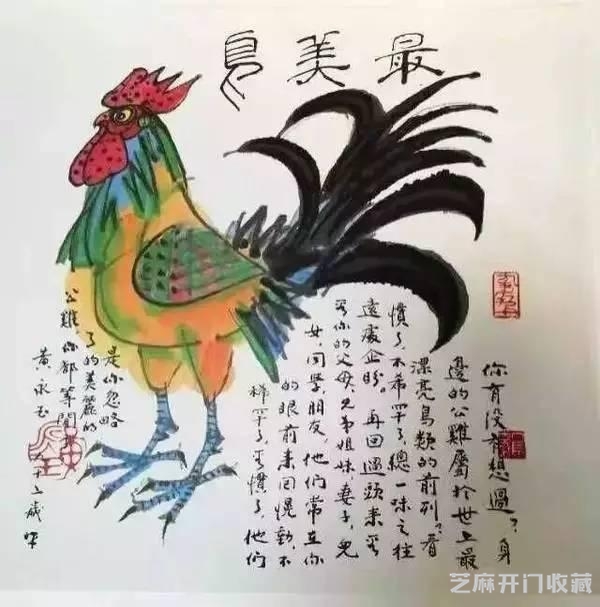 最美鳥
你有没有想過？身
邊的公雞屬於世上最
漂亮鳥類的前列？看
慣了，不希罕了，總一味之往
遠處企盼。再回過頭来看
看你的父母，兄弟姐妹，妻子，兒
女，同學，朋友，他們常在你
的眼前来回慌動，不
稀罕了，看慣了，他們
是你忽略
了的美麗的
公雞，你都等閒
黄永玉
九十二歲
芝麻开门收藏